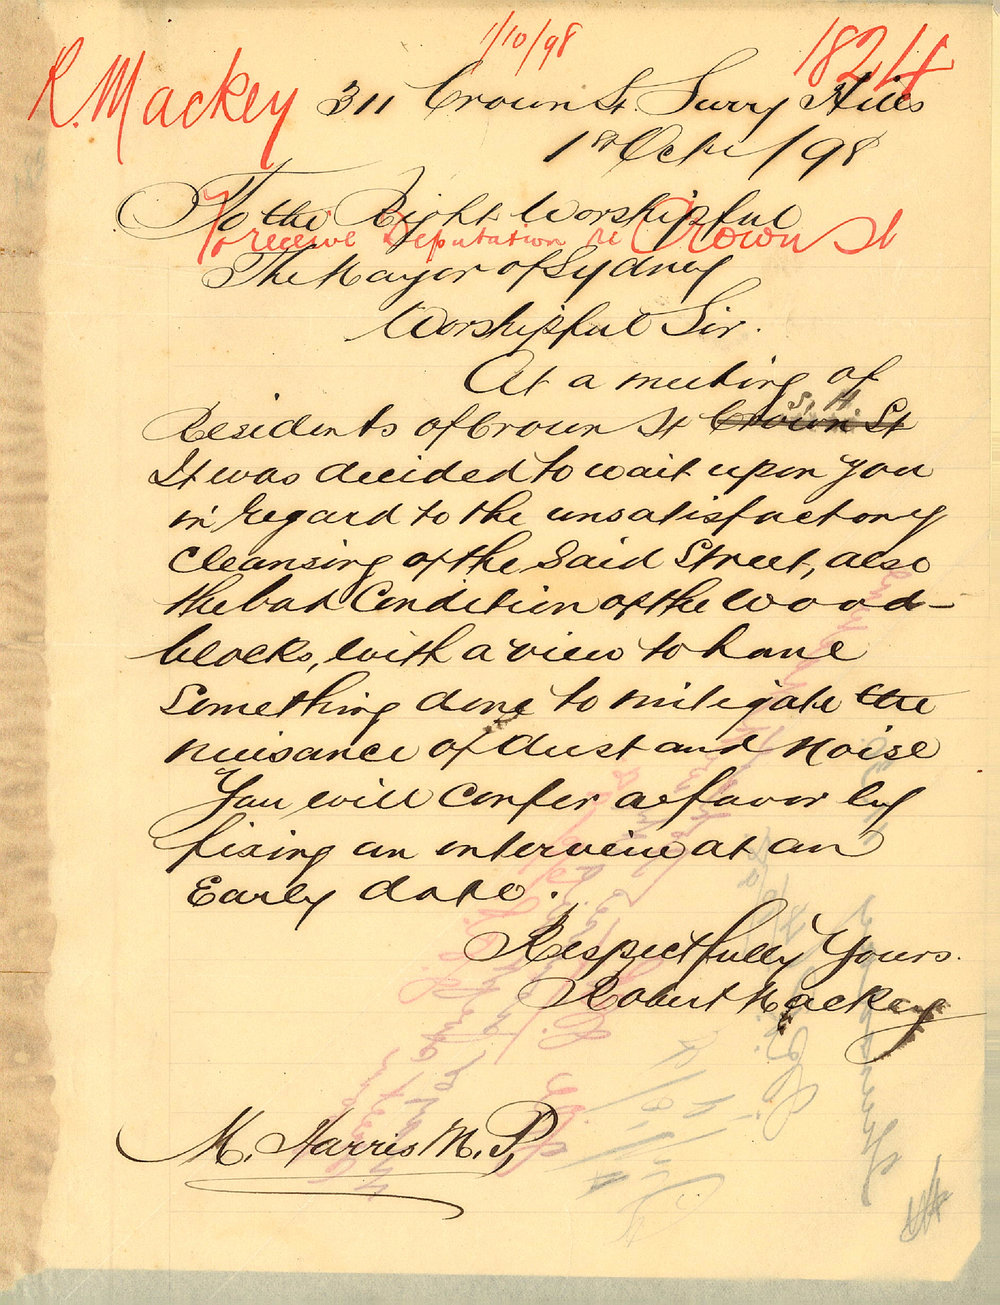 1/10/98
1824
R. Mackey
311 Crown St Surry Hills
1st Octr /98
To the Right Worshipful
To receive Deputation re Crown St
The Mayor of Sydney
Worshipful Sir.
At a meeting of
S. H.
Residents of Crown St Crown St
It was decided to wait upon you
in regard to the unsatisfactory
Cleansing of the Said Street, also
the bad Condition of the wood-
blocks, with a view to have
Something done to mitigate the
nuisance of dust and Noise
You will confer a favor by
fixing an interview at an
Early date.
Respectfully Yours.
Robert Mackey
M. Harris M. P,